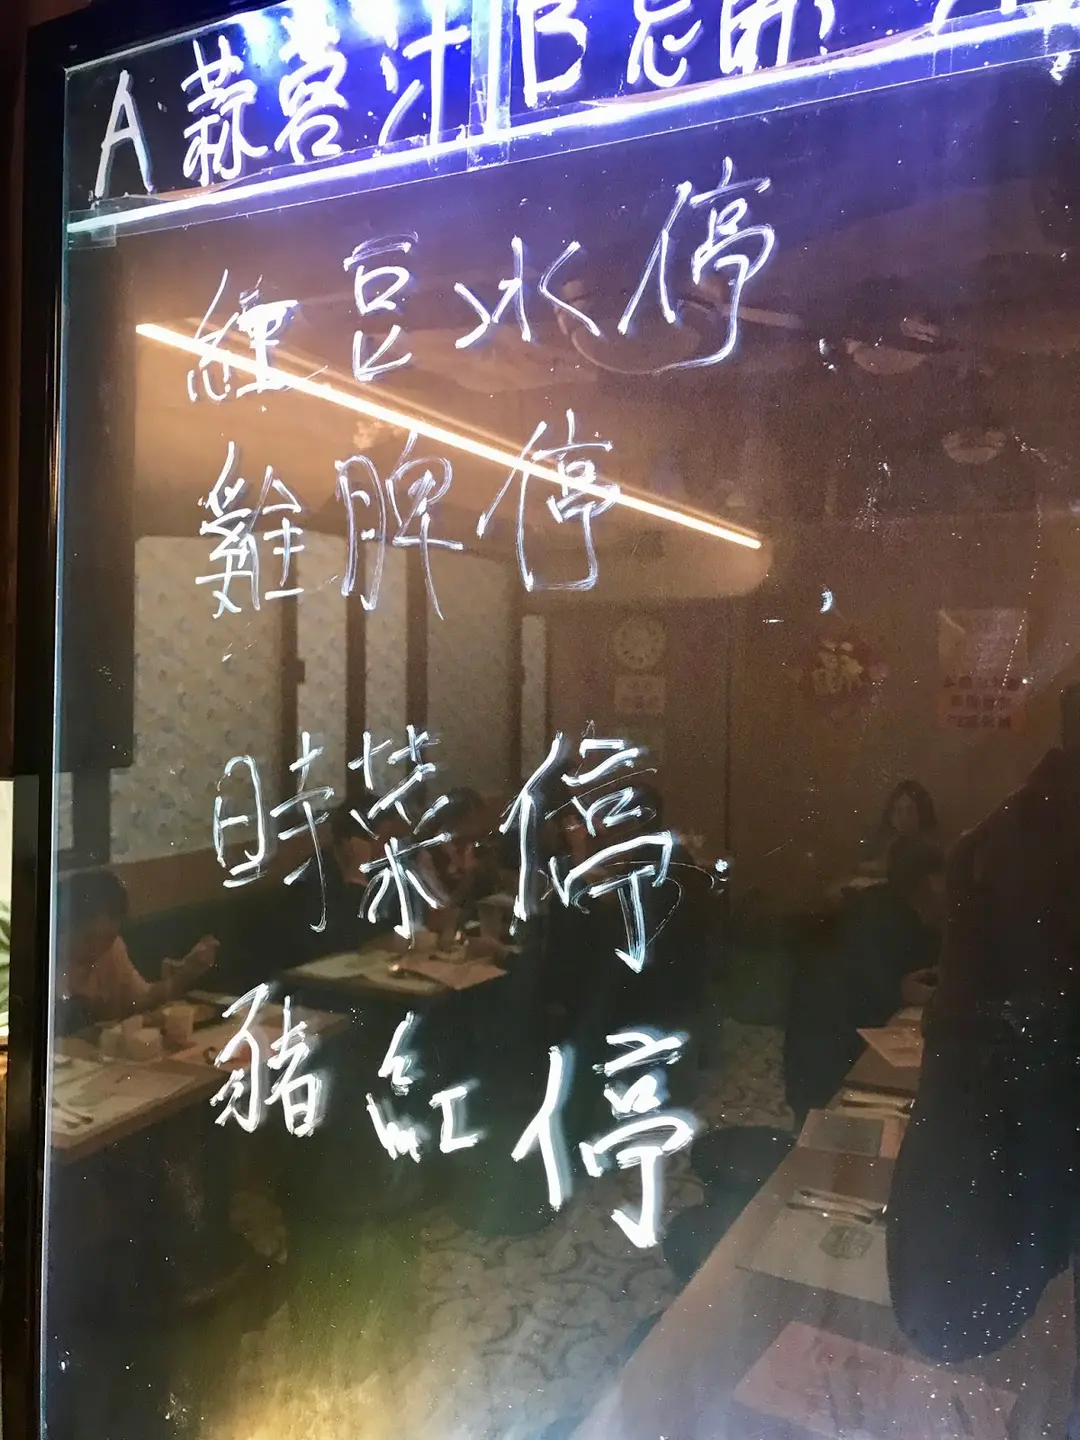 A 蒜蓉汁 B
豆冰停
雞脾停
時菜停
豬紅停